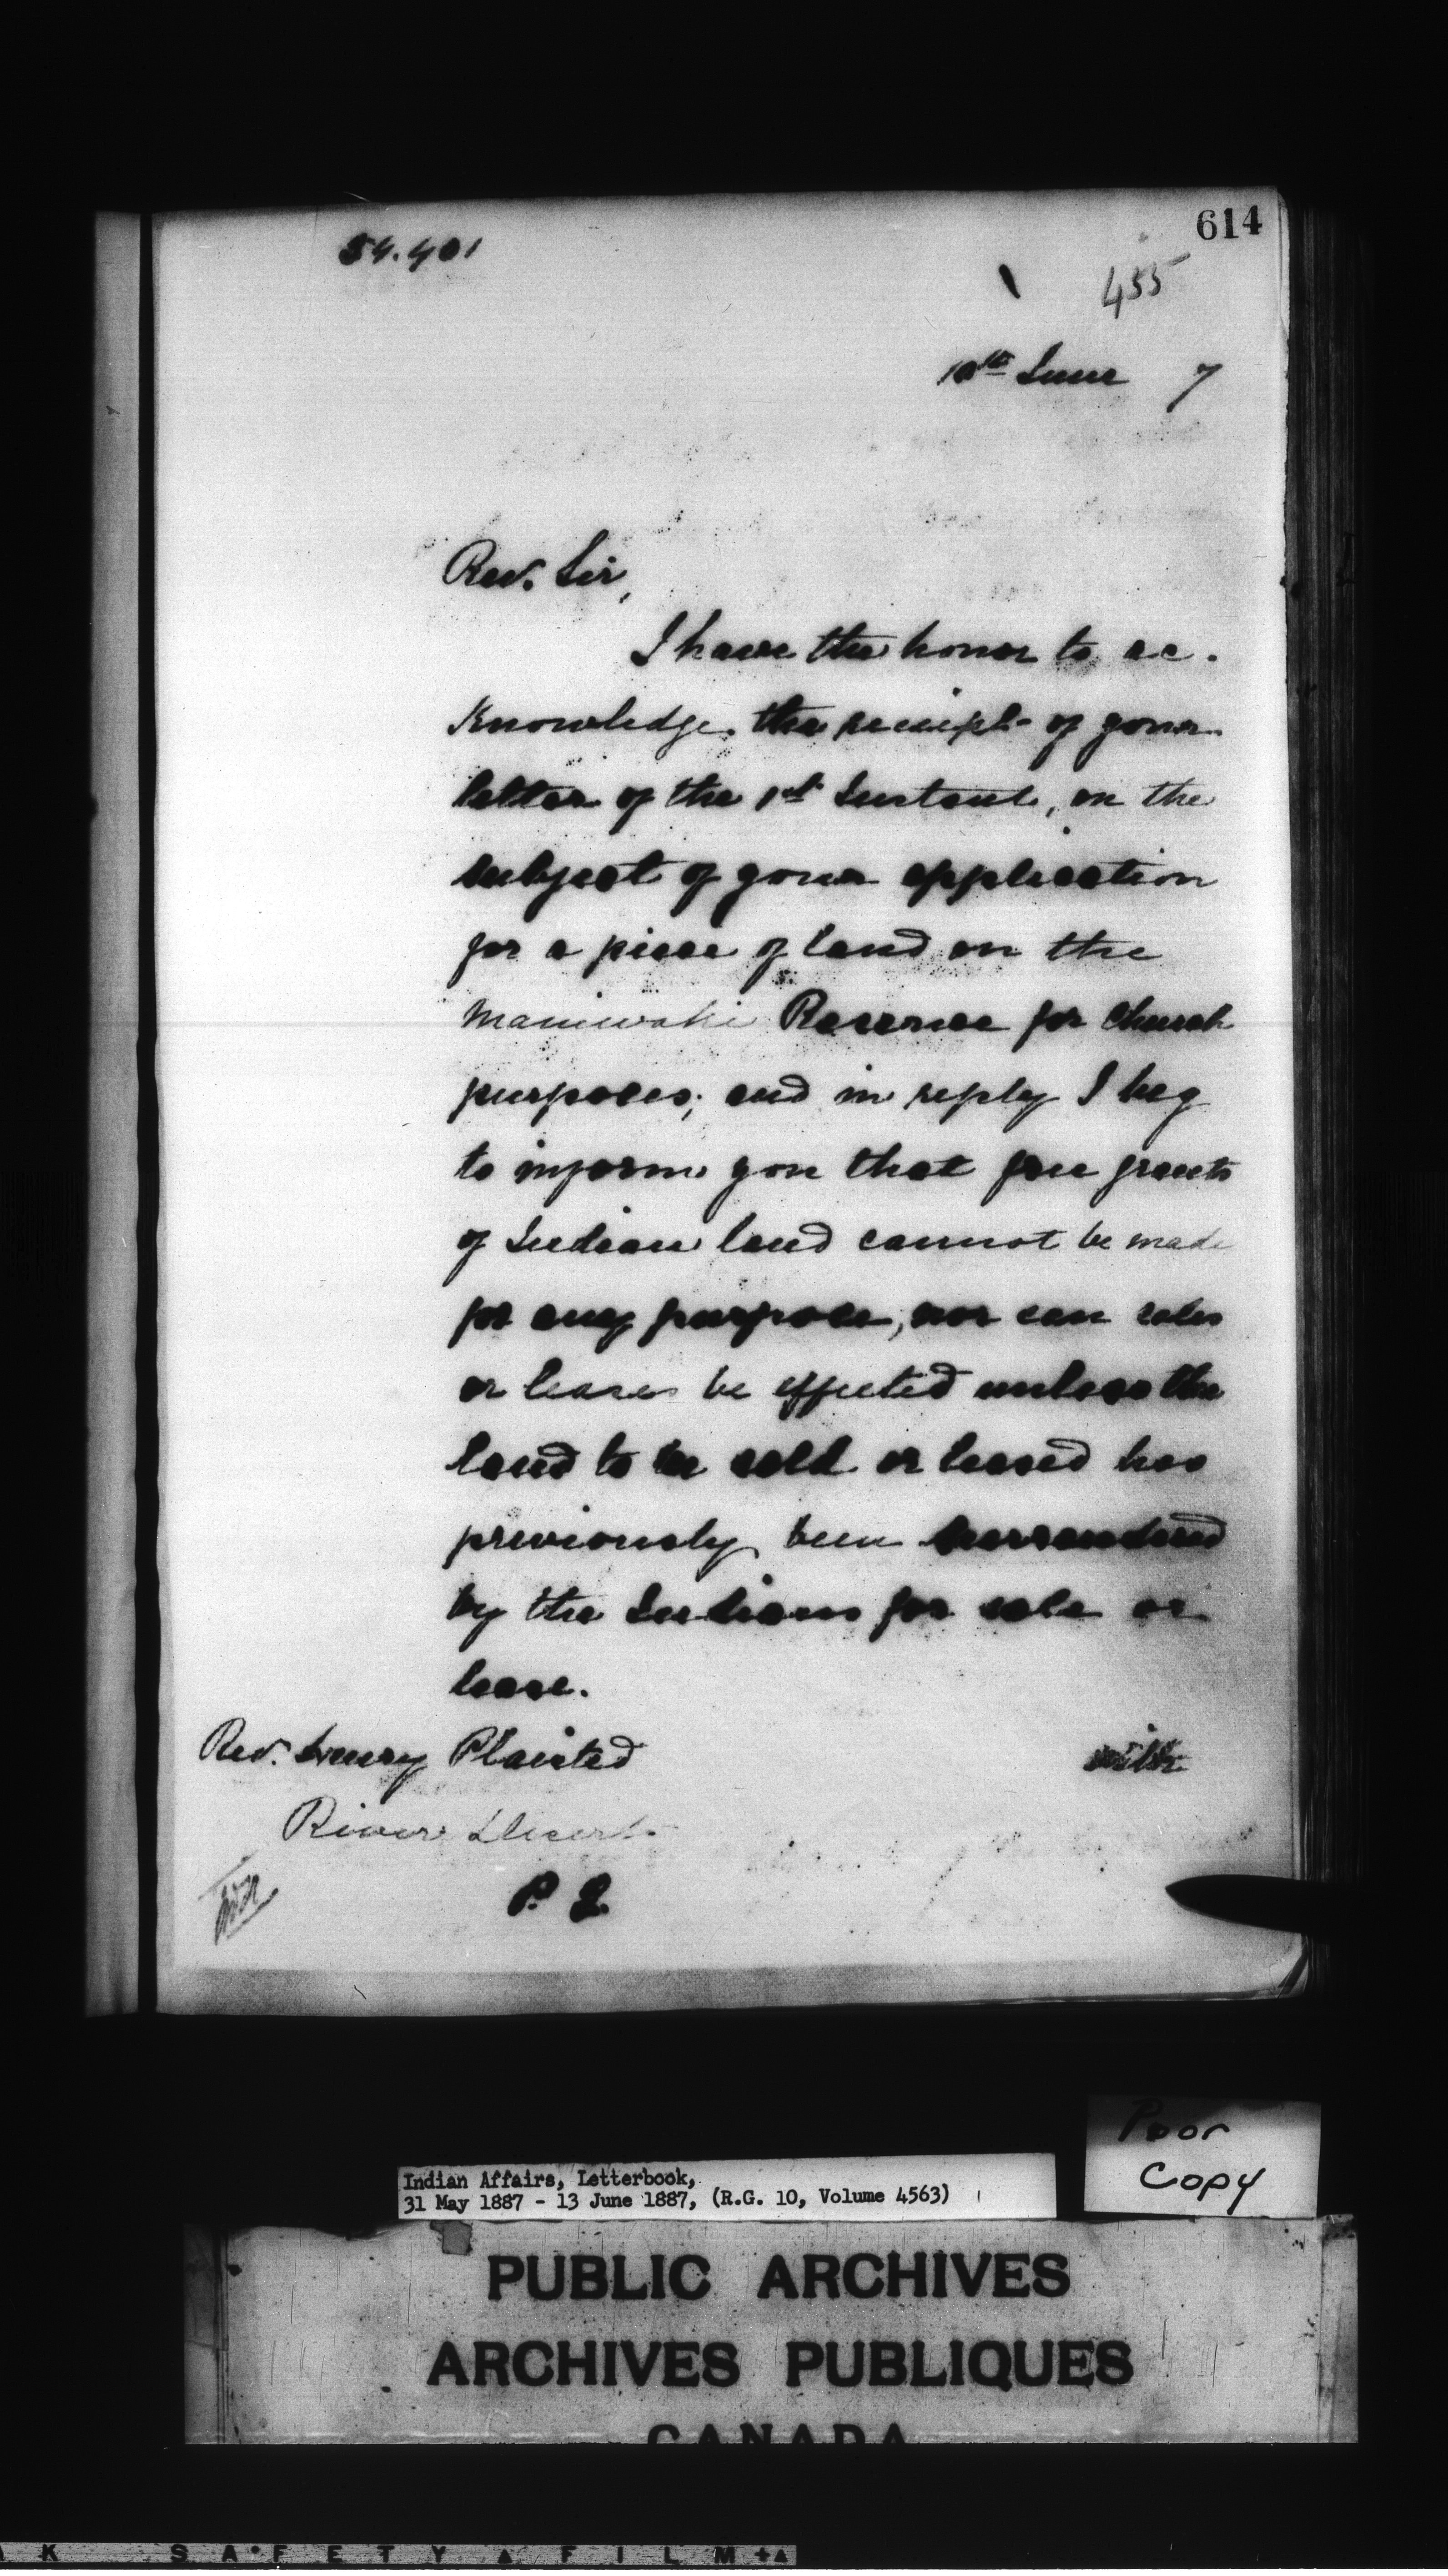 614
54.401
455
10th June 7
Rev. Sir,
I have the honor to ac.
knowledge the receipt of your
letter of the 1st Instant, on the
subject of your application
for a piece of land on the
Maniwaki Reserve for Church
purposes; and in reply I beg
to inform you that free grants
of Indian land cannot be made
for any purpose, nor can sales
or leases be effected unless the
land to be sold or leased has
previously been surrendered
by the Indians for sale or
lease.
Rev. Henry Plaisted
with
River Desert
P. Q.
Poor
Copy
Indian Affairs, Letterbook,
31 May 1887 - 13 June 1887, (R.G. 10, Volume 4563)
PUBLIC ARCHIVES
ARCHIVES PUBLIQUES
CANADA
K SAFETY FILM